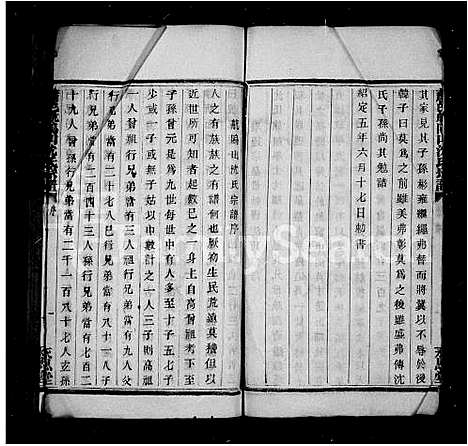 其家見其子孫彬彬雍雍弗替而將冀以不辱於後
韓子曰莫為之前雖美弗彰莫為之後雖盛弗傳沈
氏子孫尚其勉諸
紹定五年六月十七日勅書
蕭邑 山沈氏宗譜序
人之有族族之有譜何也厥初生民荒遠莫稽但以
近世所可知者起數已之一身上自高曾祖考下至
子孫曾元是為九世每世之人多至十子五七子
少或一子或無子姑以中數計之一人三子則高祖
一人曾祖行兄弟當有三人祖行兄弟當有九人父
行兄弟當有二十七人己行兄弟當有八十一人子
行兄弟當有二百四十三人孫行兄弟當有七百二
十九人曾孫行兄弟當有二千一百八十七人玄孫
序
一